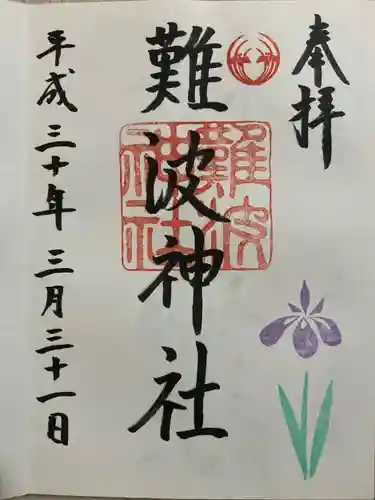 奉拝
難波神社
難波神社
平成三十年三月三十一日